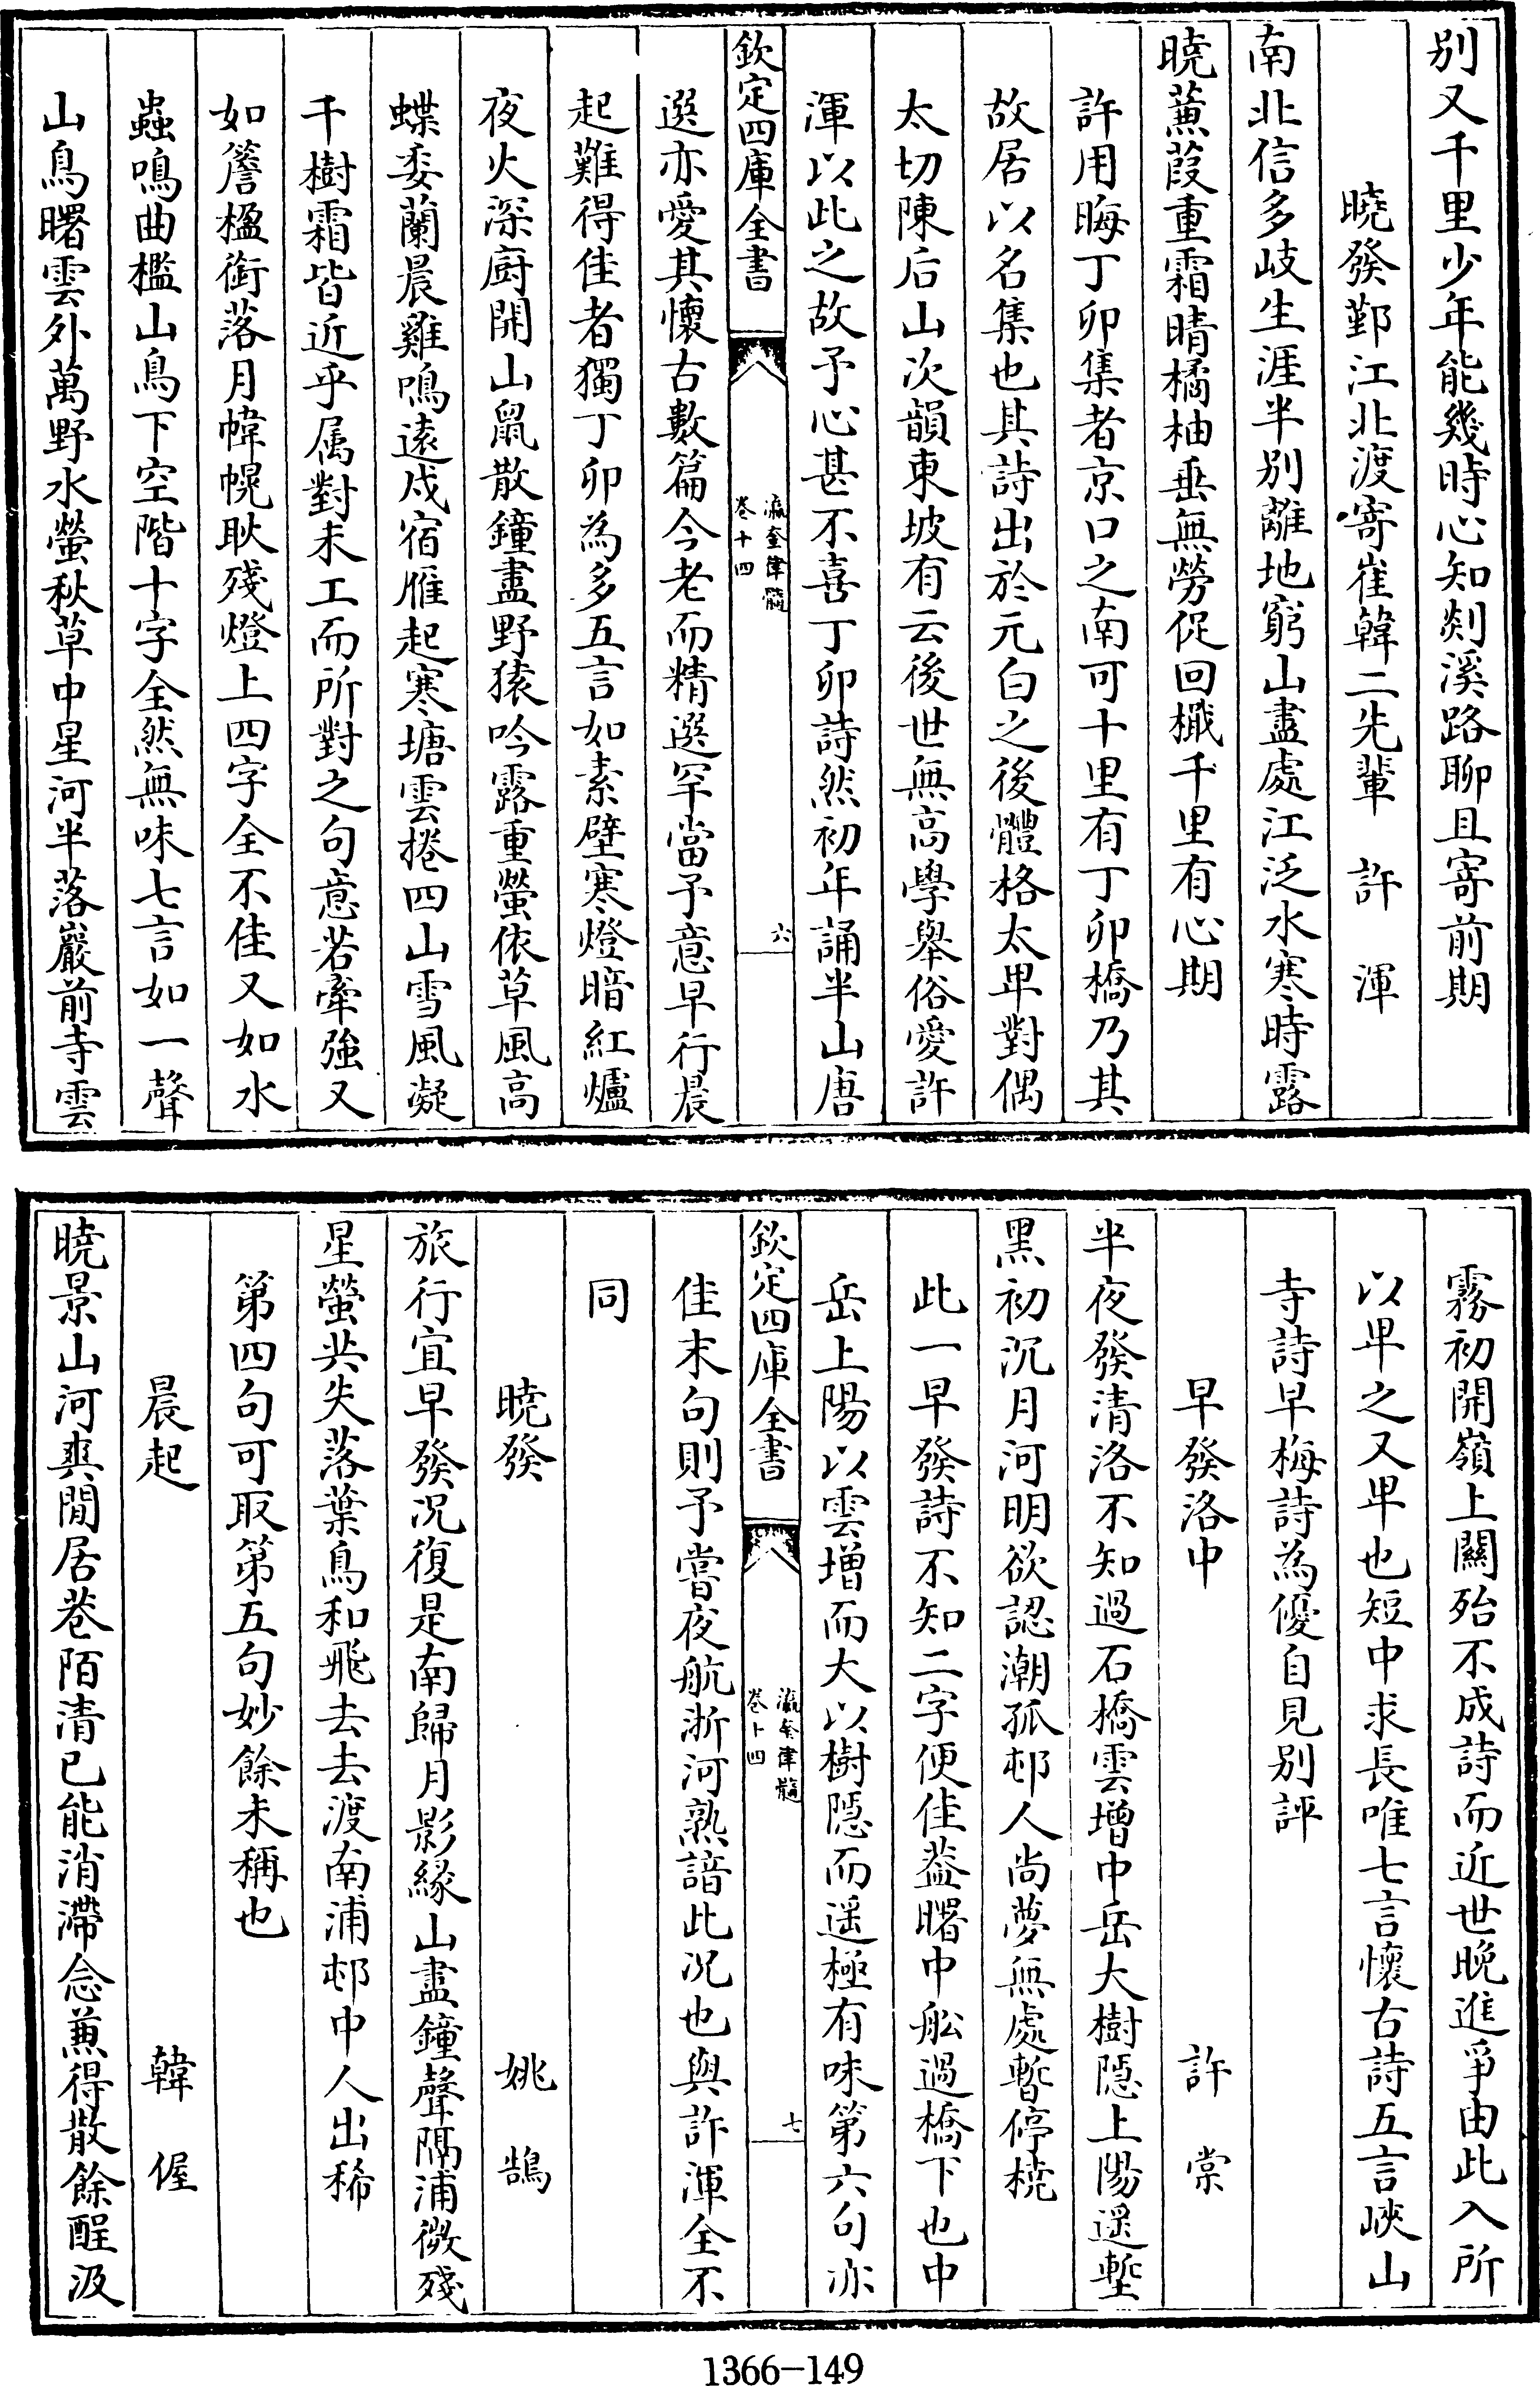 别又千里少年能幾時心知剡溪路聊且寄前期
曉發鄞江北渡寄崔韓二先輩 許渾
南北信多岐生涯半别離地窮山盡處江泛水寒時露
曉蒹葭重霜晴橘柚垂無勞促回檝千里有心期
許用晦丁卯集者京口之南可十里有丁卯橋乃其
故居以名集也其詩出於元白之後體格太卑對偶
太切陳后山次韻東坡有云後世無高學舉俗愛許
渾以此之故予心甚不喜丁卯詩然初年誦半山唐
欽定四庫全書 瀛奎律髓 卷十四 六
選亦愛其懷古數篇今老而精選罕當予意早行晨
起難得佳者獨丁卯為多五言如素壁寒燈暗紅爐
夜火深廚開山鼠散鐘盡野猿吟露重螢依草風高
蝶委蘭晨雞鳴遠戍宿雁起寒塘雲捲四山雪風凝
千樹霜皆近乎属對未工而所對之句意若牽強又
如簷楹銜落月幃幌耿殘燈上四字全不佳又如水
蟲鳴曲檻山鳥下空階十字全然無味七言如一聲
山鳥曙雲外萬野水螢秋草中星河半落巖前寺雲
霧初開嶺上關殆不成詩而近世晚進爭由此入所
以卑之又卑也短中求長唯七言懷古詩五言峽山
寺詩早梅詩為優自見别評
早發洛中 許棠
半夜發清洛不知過石橋雲增中岳大樹隱上陽遥塹
黑初沉月河明欲認潮孤邨人尚夢無處暫停橈
此一早發詩不知二字便佳葢曙中舩過橋下也中
岳上陽以雲增而大以樹隱而遥極有味第六句亦
欽定四庫全書 瀛奎律髓 卷十四 七
佳末句則予嘗夜航浙河熟諳此况也與許渾全不
同
曉發 姚鵠
旅行宜早發况復是南歸月影緣山盡鐘聲隔浦微殘
星螢共失落葉鳥和飛去去渡南浦邨中人出稀
第四句可取第五句妙餘未稱也
晨起 韓偓
曉景山河爽閒居巷陌清已能消滯念兼得散餘酲汲
1366-149